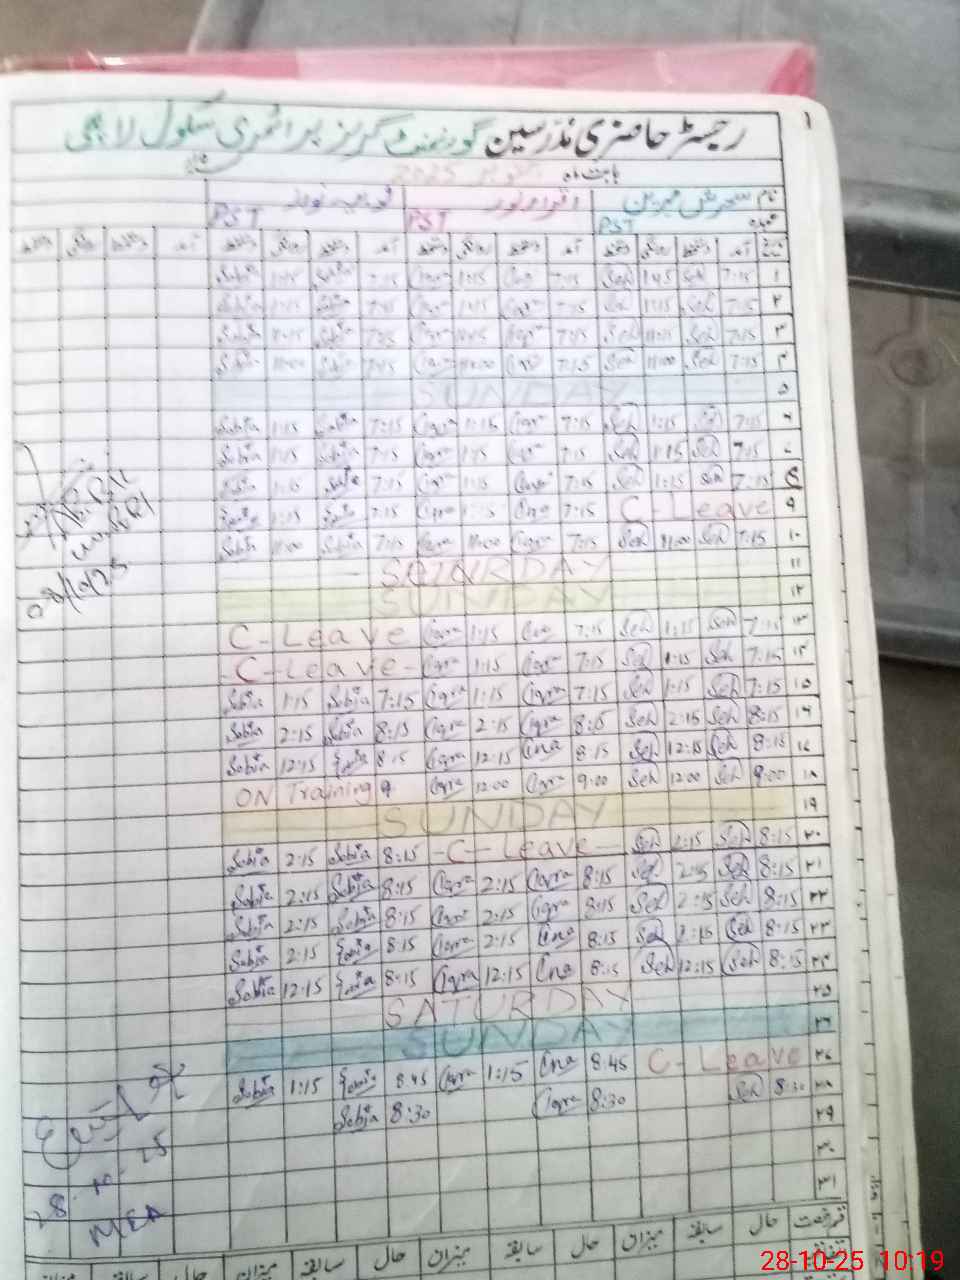 رجسٹر حاضری مدرسین گورنمنٹ گرلز پرائمری سکول لاہی
بابت ماہ اکتوبر 2025
نام سحرش مہرین اقراء نور ثوبیہ نورین
عہدہ PST PST PST
آمد دستخط روانگی دستخط آمد دستخط روانگی دستخط آمد دستخط روانگی دستخط آمد دستخط روانگی دستخط
۱ 7:15 Seh 1:45 Seh 7:15 Iqra 1:15 Iqra 7:15 Sobia 1:15 Sobia
۲ 7:15 Seh 1:15 Seh 7:15 Iqra 1:15 Iqra 7:15 Sobia 1:15 Sobia
۳ 7:15 Seh 11:15 Seh 7:15 Iqra Iqra 7:15 Sobia Sobia
۴ 7:15 Seh 11:00 Seh 7:15 Iqra 11:00 Iqra 7:15 Sobia 11:00 Sobia
۵ SUNDAY
۶ 7:15 Seh 1:15 Seh 7:15 Iqra 1:15 Iqra 7:15 Sobia 1:15 Sobia
۷ 7:15 Seh 1:15 Seh 7:15 Iqra 1:15 Iqra 7:15 Sobia 1:15 Sobia
۸ 7:15 Seh 1:15 Seh 7:15 Iqra 1:15 Iqra 7:15 Sobia 1:15 Sobia
۹ C-Leave 7:15 Iqra 1:15 Iqra 7:15 Sobia 1:15 Sobia
۱۰ 7:15 Seh 11:00 Seh 7:15 Iqra 11:00 Iqra 7:15 Sobia 11:00 Sobia
۱۱ SATURDAY
۱۲ SUNDAY
۱۳ 7:15 Seh 1:15 Seh 7:15 Iqra 1:15 Iqra C-Leave
۱۴ 7:15 Seh 1:15 Seh 7:15 Iqra 1:15 Iqra -C-Leave-
۱۵ 7:15 Seh 1:15 Seh 7:15 Iqra 1:15 Iqra 7:15 Sobia 1:15 Sobia
۱۶ 8:15 Seh 2:15 Seh 8:15 Iqra 2:15 Iqra 8:15 Sobia 2:15 Sobia
۱۷ 8:15 Seh 12:15 Seh 8:15 Iqra 12:15 Iqra 8:15 Sobia 12:15 Sobia
۱۸ 9:00 Seh 12:00 Seh 9:00 Iqra 12:00 Iqra ON Training 9
۱۹ SUNDAY
۲۰ 8:15 Seh 2:15 Seh -C-Leave- 8:15 Sobia 2:15 Sobia
۲۱ 8:15 Seh 2:15 Seh 8:15 Iqra 2:15 Iqra 8:15 Sobia 2:15 Sobia
۲۲ 8:15 Seh 2:15 Seh 8:15 Iqra 2:15 Iqra 8:15 Sobia 2:15 Sobia
۲۳ 8:15 Seh 2:15 Seh 8:15 Iqra 2:15 Iqra 8:15 Sobia 2:15 Sobia
۲۴ 8:15 Seh 12:15 Seh 8:15 Iqra 12:15 Iqra 8:15 Sobia 12:15 Sobia
۲۵ SATURDAY
۲۶ SUNDAY
۲۷ C-Leave 8:45 Iqra 1:15 Iqra 8:45 Sobia 1:15 Sobia
۲۸ 8:30 Seh 8:30 Iqra 8:30 Sobia
۲۹
۳۰
۳۱
28-10-25
MEA
رخصت حال سابقہ میزان حال سابقہ میزان حال سابقہ میزان حال سابقہ میزان
28-10-25 10:19